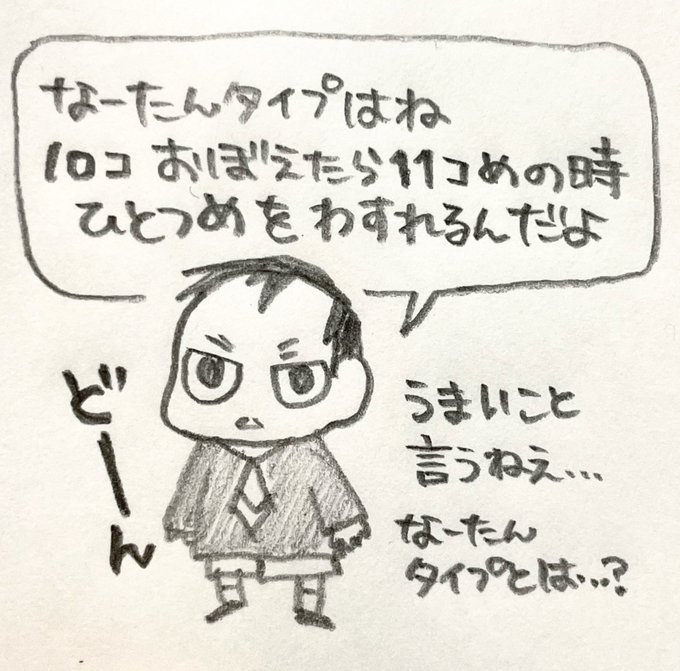 なーたんタイプはね
10コ おぼえたら11コめの時
ひとつめを わすれるんだよ
どーん
うまいこと
言うねえ…
なーたん
タイプとは…?